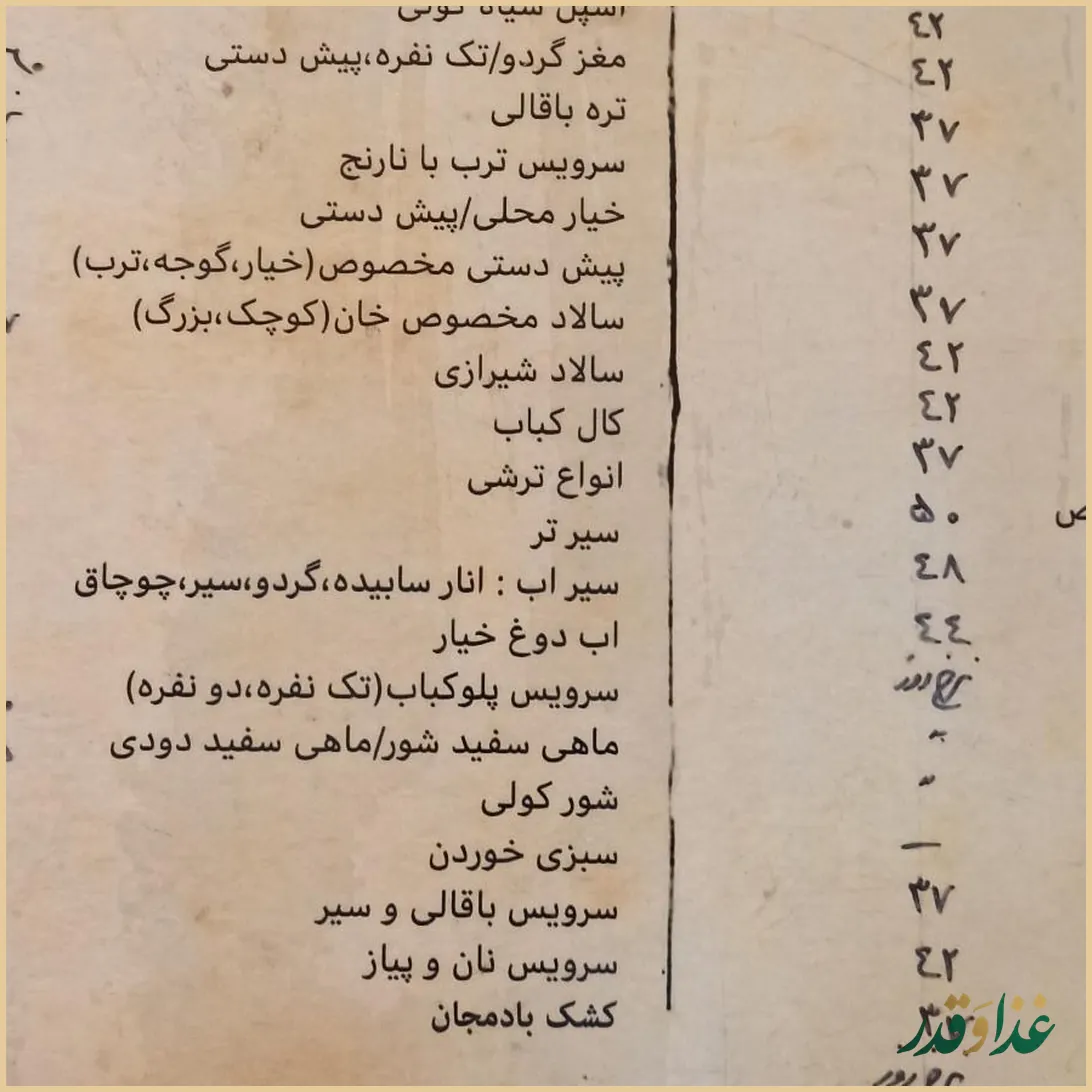 ۴۲
۴۲
۳۷
۳۷
۳۷
۳۷
۴۲
۴۲
۳۷
۵۰
۴۸
۴۴
نرخ روز
"
"
—
۳۷
۴۲
سیاه کولی
مغز گردو/تک نفره،پیش دستی
تره باقالی
سرویس ترب با نارنج
خیار محلی/پیش دستی
پیش دستی مخصوص(خیار،گوجه،ترب)
سالاد مخصوص خان(کوچک،بزرگ)
سالاد شیرازی
کال کباب
انواع ترشی
سیر تر
سیر اب : انار سابیده،گردو،سیر،چوچاق
اب دوغ خیار
سرویس پلوکباب(تک نفره،دو نفره)
ماهی سفید شور/ماهی سفید دودی
شور کولی
سبزی خوردن
سرویس باقالی و سیر
سرویس نان و پیاز
کشک بادمجان
غذا و قدر